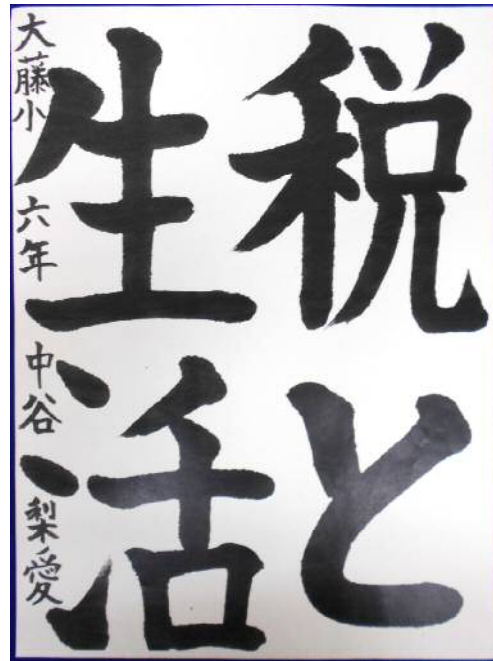 税と
生活
大藤小 六年 中谷 梨愛